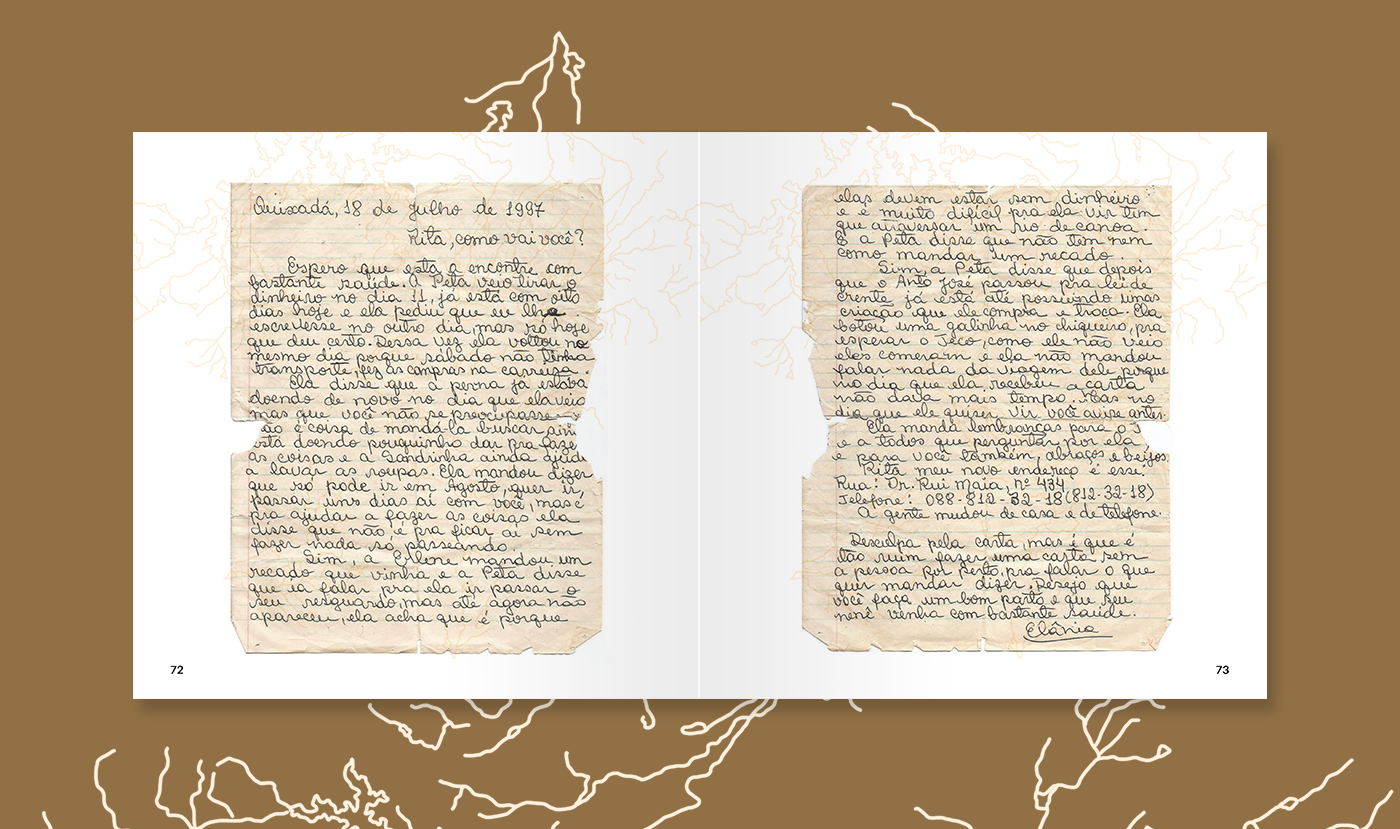 Quixadá, 18 de julho de 1997
Rita, como vai você?
Espero que esta a encontre com
bastante saúde. A Peta veio tirar o
dinheiro no dia 11, já está com oito
dias hoje e ela pediu que eu lhe
escrevesse no outro dia, mas só hoje
que deu certo. Dessa vez ela voltou no
mesmo dia porque, sábado não tinha
transporte, fez as compras na carreira
Ela disse que a perna já estava
doendo de novo no dia que ela veio
mas que você não se preocupasse
não é coisa de mandá-la buscar
está doendo pouquinho dar pra fazer
as coisas e a Sandrinha ainda ajuda
a lavar as roupas. Ela mandou dizer
que só pode ir em Agosto, quer ir,
passar uns dias aí com você, mas é
pra ajudar a fazer as coisas ela
disse que não é pra ficar aí sem
fazer nada só passeando.
Sim, a mandou um
recado que vinha e a Peta disse
que ia falar pra ela ir passar o
seu resguardo, mas até agora não
apareceu, ela acha que é porque
72
elas devem estar sem dinheiro
e é muito difícil pra ela vir tem
que atravessar um rio de canoa.
E a Peta disse que não tem nem
como mandar um recado.
Sim, a Peta disse que depois
que o Antº José passou pra lei de
crente já está até possuindo umas
criação que ele compra e troca. Ela
botou uma galinha no chiqueiro, pra
esperar Teco, como ele não veio
eles comeram e ela não mandou
falar nada da viagem dele porque
no dia que ela recebeu a carta
não dava mais tempo. Mas no
dia que ele quiser vir você avise antes.
Ela manda lembranças para o
e a todos que perguntar por ela
e para você também, abraços e beijos.
Rita meu novo endereço é esse:
Rua: Dr. Rui Maia, nº 434
Telefone: 088-812-32-18 (812-32-18)
A gente mudou de casa e de telefone.
Desculpa pela carta, mas é que é
tão ruim fazer uma carta sem
a pessoa por perto, pra falar o que
quer mandar dizer, Desejo que
você faça um bom parto e que seu
nenê venha com bastante saúde.
Elânia
73